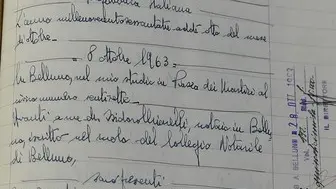 Repubblica Italiana
L'anno millenovecentosessantatre, addì otto del mese
ottobre.
= 8 ottobre 1963 =
In Belluno, nel mio studio in Piazza dei Martiri al
civico numero ventisette
Avanti a me dr. Isidoro Chiarelli, notaio in Bellu
no, iscritto nel ruolo del Collegio Notarile
di Belluno,
sono presenti
BELLUNO 28 OTT 1963